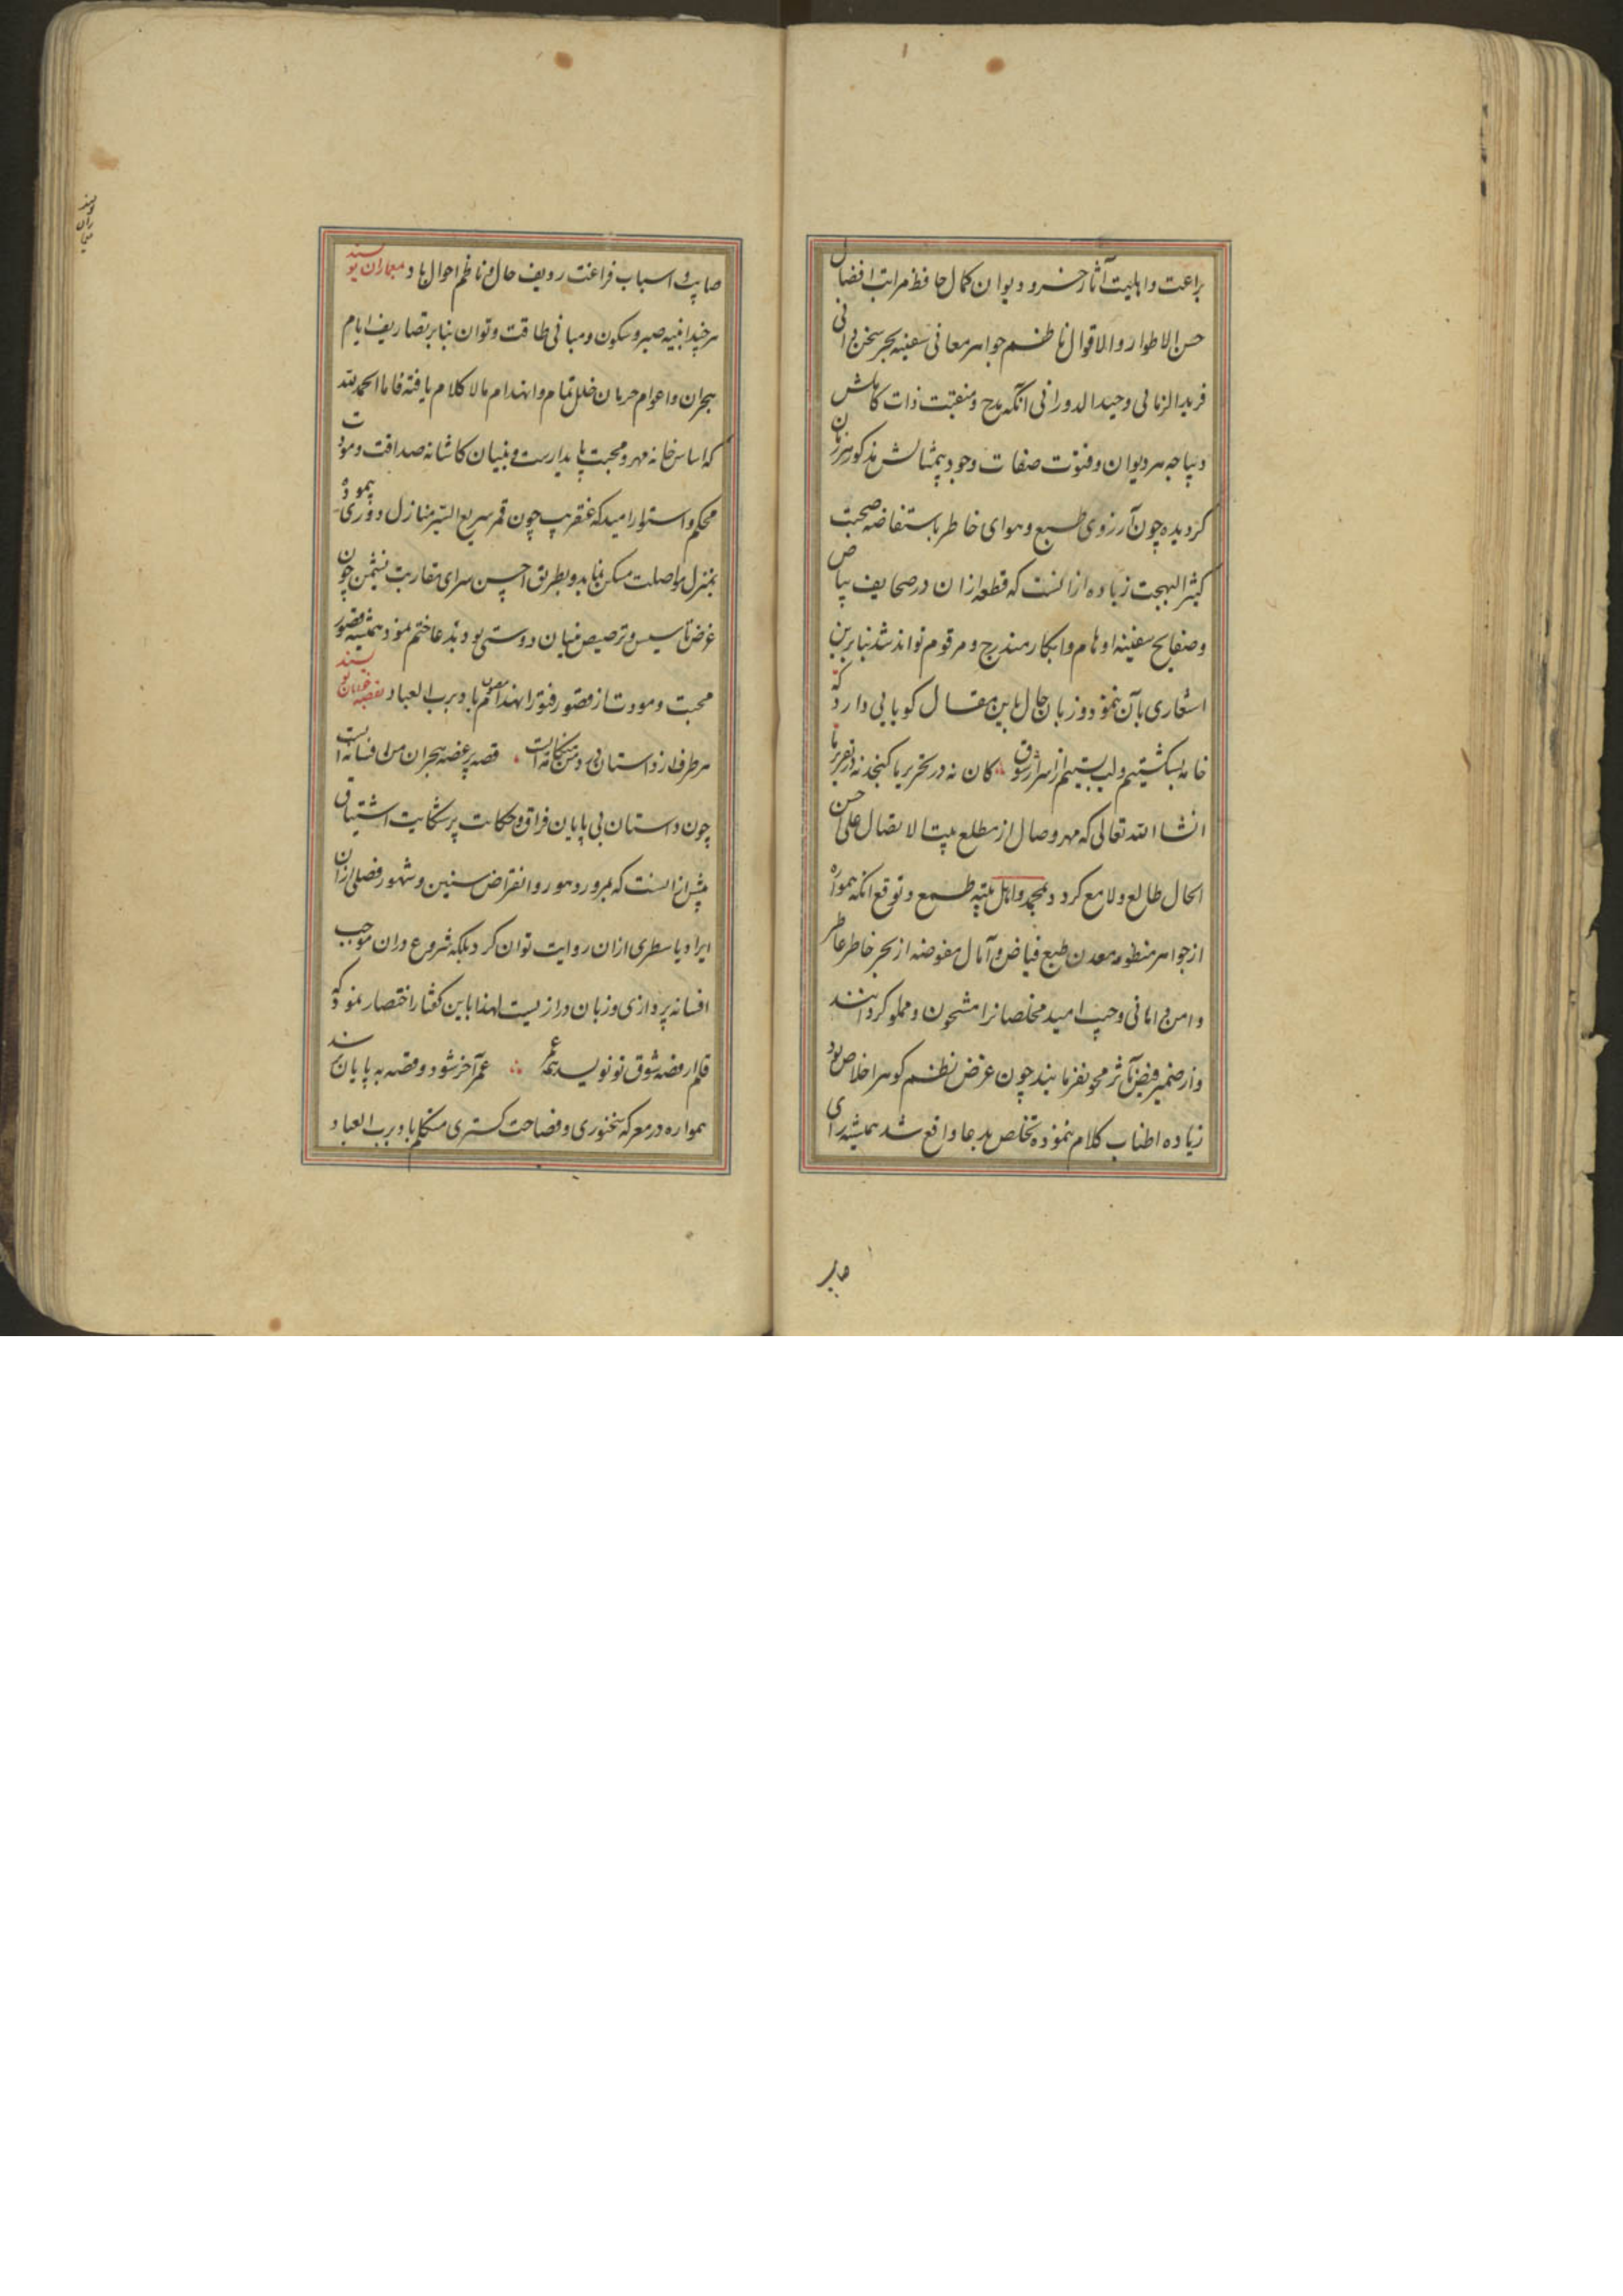 براعت و اهلیت آثار خسرو دیوان کمال حافظ مراتب افضال
حسن الاطوار والاقوال ناظم جواهر معانی سفینه بحر سخن دانی
فرید الزمانی وحید الدورانی آنکه مدح و منقبت ذات کاملش
دیباجه هر دیوان و فنون صفات وجود بیمثالش مذکور هر زبان
کردیده چون آرزوی طبع و هوای خاطر باستفاضه صحبت
کثیر البهجت زیاده از انست که قطعه ازان در صحایف بیاض
وصفایح سفینه اوهام و ابکار مندرج و مرقوم تواند شد بنابرین
اشعاری بآن نموده و زبان حال باین مقال کویایی دارد که
خامه بشکستیم و لب بستیم از اسرار شوق کان نه در تحریر ما کنجد نه در تقریر ما
انشاالله تعالی که مهر وصال از مطلع بیت الاتصال علی احسن
الحال طالع و لامع کردد بمحمد و اهل بیته طمع و توقع انکه همواره
از جواهر منظومه معدن طبع فیاض و آمال مفوضه از بحر خاطر عاطر
دامن امانی و جیب امید مخلصانرا مشحون و مملو کردانند
و از ضمیر فیض مآثر محو نفرمایند چون غرض نظم کوهر اخلاص بود
زیاده اطناب کلام ننموده تخلص بدعا واقع شد همیشه رای
صایب
صایب و اسباب فراغت ردیف حال و ناظم احوال باد معماران نویسند
هر چند ابنیه صبر و سکون و مبانی طاقت و توان بنابر تصاریف ایام
هجران و اعوام حرمان خلل تمام و انهدام مالا کلام یافته فاما الحمد لله
که اساس خانه مهر و محبت پایدارست و بنیان کاشانه صداقت و مودت
محکم و استوار امید که عنقریب چون قمر سریع السیر منازل دوری پیموده
بمنزل مواصلت مسکن نماید و بطریق احسن سرای مقاربت نشیمن چون
غرض تاسیس و ترصیص بنیان دوستی بود بدعا ختم نمود همیشه قصور
محبت و مودت از قصور فتور انهدام مصون باد برب العباد بقصه خوانان نویسند
هر طرف از داستان بیدلی هنکامه ایست قصه پر غصه هجران من افسانه ایست
چون داستان بی پایان فراق و حکایت پر شکایت اشتیاق
بیش از انست که بمرور دهور و انقراض سنین و شهور فصلی ازان
ایراد یا سطری ازان روایت توان کرد بلکه شروع دران موجب
افسانه پردازی و زبان درازیست لهذا باین کفتار اختصار نمود که
قلم ار قصه شوق تو نویسد همه عمر عمر آخر شود و قصه به پایان نرسد
همواره در معرکه سخنوری و فصاحت کستری متکلم باد برب العباد